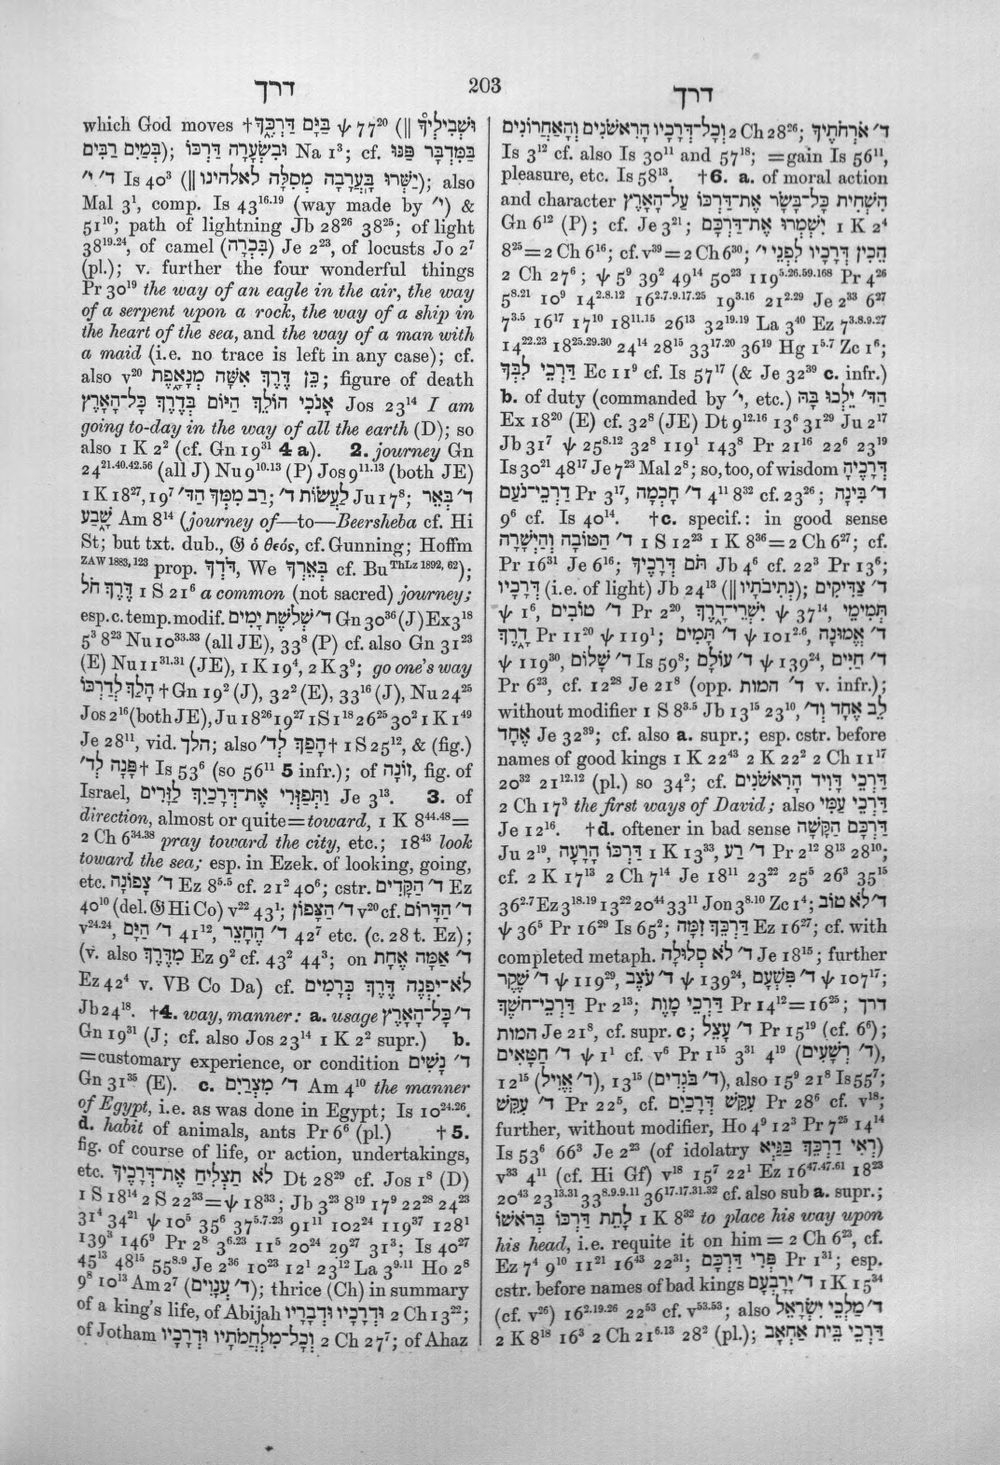 דרך 203 דרך
which God moves †בַּיָּם דַּרְכֶּךָ ψ 77²⁰ (‖ וּשְׁבִילֶיךָ
בְּמַיִם רַבִּים); וּבִשְׂעָרָה דַּרְכּוֹ Na 1³; cf. בַּמִּדְבָּר פַּנּוּ
ד׳ י׳ Is 40³ (‖ יַשְּׁרוּ בָּעֲרָבָה מְסִלָּה לאלהינו); also
Mal 3¹, comp. Is 43¹⁶·¹⁹ (way made by י׳) &
51¹⁰; path of lightning Jb 28²⁶ 38²⁵; of light
38¹⁹·²⁴, of camel (בִּכְרָה) Je 2²³, of locusts Jo 2⁷
(pl.); v. further the four wonderful things
Pr 30¹⁹ the way of an eagle in the air, the way
of a serpent upon a rock, the way of a ship in
the heart of the sea, and the way of a man with
a maid (i.e. no trace is left in any case); cf.
also v²⁰ כֵּן דֶּרֶךְ אִשָּׁה מְנָאָפֶת; figure of death
אָנֹכִי הוֹלֵךְ הַיּוֹם בְּדֶרֶךְ כָּל־הָאָרֶץ Jos 23¹⁴ I am
going to-day in the way of all the earth (D); so
also 1 K 2² (cf. Gn 19³¹ 4 a). 2. journey Gn
24²¹·⁴⁰·⁴²·⁵⁶ (all J) Nu 9¹⁰·¹³ (P) Jos 9¹¹·¹³ (both JE)
1 K 18²⁷, 19⁷ רַב מִמְּךָ הַדּ׳; לַעֲשׂוֹת ד׳ Ju 17⁸; ד׳ בְּאֵר
שָׁבַע Am 8¹⁴ (journey of—to—Beersheba cf. Hi
St; but txt. dub., 𝔊 ὁ θεός, cf. Gunning; Hoffm
ZAW 1883, 123 prop. דֹּדְךָ, We בְּאֵרְךָ cf. Bu ThLz 1892, 62);
דֶּרֶךְ חֹל 1 S 21⁶ a common (not sacred) journey;
esp. c. temp. modif. ד׳ שְׁלשֶׁת יָמִים Gn 30³⁶ (J) Ex 3¹⁸
5³ 8²³ Nu 10³³·³³ (all JE), 33⁸ (P) cf. also Gn 31²³
(E) Nu 11³¹·³¹ (JE), 1 K 19⁴, 2 K 3⁹; go one's way
הָלַךְ לְדַרְכּוֹ † Gn 19² (J), 32² (E), 33¹⁶ (J), Nu 24²⁵
Jos 2¹⁶ (both JE), Ju 18²⁶ 19²⁷ 1 S 1¹⁸ 26²⁵ 30² 1 K 1⁴⁹
Je 28¹¹, vid. הלך; also הָפַךְ לְד׳ † 1 S 25¹², & (fig.)
פָּנָה לְד׳ † Is 53⁶ (so 56¹¹ 5 infr.); of זוֹנָה, fig. of
Israel, וַתְּפַזְּרִי אֶת־דְּרָכַיִךְ לַזָּרִים Je 3¹³. 3. of
direction, almost or quite=toward, 1 K 8⁴⁴·⁴⁸=
2 Ch 6³⁴·³⁸ pray toward the city, etc.; 18⁴³ look
toward the sea; esp. in Ezek. of looking, going,
etc. ד׳ צָפוֹנָה Ez 8⁵·⁵ cf. 21² 40⁶; cstr. ד׳ הַקָּדִים Ez
40¹⁰ (del. 𝔊 Hi Co) v²² 43¹; ד׳ הַצָּפוֹן v²⁰ cf. ד׳ הַדָּרוֹם
v²⁴·²⁴, ד׳ הַיָּם 41¹², ד׳ הֶחָצֵר 42⁷ etc. (c. 28 t. Ez);
(v. also מִדֶּרֶךְ Ez 9² cf. 43² 44³; on ד׳ אַמָּה אֶחָת
Ez 42⁴ v. VB Co Da) cf. לֹא־יִפְנֶה דֶּרֶךְ כְּרָמִים
Jb 24¹⁸. †4. way, manner: a. usage ד׳ כָּל־הָאָרֶץ
Gn 19³¹ (J; cf. also Jos 23¹⁴ 1 K 2² supr.) b.
=customary experience, or condition ד׳ נָשִׁים
Gn 31³⁵ (E). c. ד׳ מִצְרַיִם Am 4¹⁰ the manner
of Egypt, i.e. as was done in Egypt; Is 10²⁴·²⁶.
d. habit of animals, ants Pr 6⁶ (pl.) †5.
fig. of course of life, or action, undertakings,
etc. לֹא תַצְלִיחַ אֶת־דְּרָכֶיךָ Dt 28²⁹ cf. Jos 1⁸ (D)
1 S 18¹⁴ 2 S 22³³=ψ 18³³; Jb 3²³ 8¹⁹ 17⁹ 22²⁸ 24²³
31⁴ 34²¹ ψ 10⁵ 35⁶ 37⁵·⁷·²³ 91¹¹ 102²⁴ 119³⁷ 128¹
139³ 146⁹ Pr 2⁸ 3⁶·²³ 11⁵ 20²⁴ 29²⁷ 31³; Is 40²⁷
45¹³ 48¹⁵ 55⁸·⁹ Je 2³⁶ 10²³ 12¹ 23¹² La 3⁹·¹¹ Ho 2⁸
9⁸ 10¹³ Am 2⁷ (ד׳ עֲנָוִים); thrice (Ch) in summary
of a king's life, of Abijah וּדְרָכָיו וּדְבָרָיו 2 Ch 13²²;
of Jotham וְכָל־מִלְחֲמֹתָיו וּדְרָכָיו 2 Ch 27⁷; of Ahaz
וְכָל־דְּרָכָיו הָרִאשֹׁנִים וְהָאַחֲרוֹנִים 2 Ch 28²⁶; ד׳ אֹרְחֹתֶיךָ
Is 3¹² cf. also Is 30¹¹ and 57¹⁸; =gain Is 56¹¹,
pleasure, etc. Is 58¹³. †6. a. of moral action
and character הִשְׁחִית כָּל־בָּשָׂר אֶת־דַּרְכּוֹ עַל־הָאָרֶץ
Gn 6¹² (P); cf. Je 3²¹; יִשְׁמְרוּ אֶת־דַּרְכָּם 1 K 2⁴
8²⁵=2 Ch 6¹⁶; cf. v³⁹=2 Ch 6³⁰; הֵכִין דְּרָכָיו לִפְנֵי י׳
2 Ch 27⁶; ψ 5⁹ 39² 49¹⁴ 50²³ 119⁵·²⁶·⁵⁹·¹⁶⁸ Pr 4²⁶
5⁸·²¹ 10⁹ 14²·⁸·¹² 16²·⁷·⁹·¹⁷·²⁵ 19³·¹⁶ 21²·²⁹ Je 2³³ 6²⁷
7³·⁵ 16¹⁷ 17¹⁰ 18¹¹·¹⁵ 26¹³ 32¹⁹·¹⁹ La 3⁴⁰ Ez 7³·⁸·⁹·²⁷
14²²·²³ 18²⁵·²⁹·³⁰ 24¹⁴ 28¹⁵ 33¹⁷·²⁰ 36¹⁹ Hg 1⁵·⁷ Zc 1⁶;
דַּרְכֵי לִבְּךָ Ec 11⁹ cf. Is 57¹⁷ (& Je 32³⁹ c. infr.)
b. of duty (commanded by י׳, etc.) הַדּ׳ יֵלְכוּ בָהּ
Ex 18²⁰ (E) cf. 32⁸ (JE) Dt 9¹²·¹⁶ 13⁶ 31²⁹ Ju 2¹⁷
Jb 31⁷ ψ 25⁸·¹² 32⁸ 119¹ 143⁸ Pr 21¹⁶ 22⁶ 23¹⁹
Is 30²¹ 48¹⁷ Je 7²³ Mal 2⁸; so, too, of wisdom דְּרָכֶיהָ
דַרְכֵי־נֹעַם Pr 3¹⁷, ד׳ חָכְמָה 4¹¹ 8³² cf. 23²⁶; ד׳ בִּינָה
9⁶ cf. Is 40¹⁴. †c. specif.: in good sense
ד׳ הַטּוֹבָה וְהַיְשָׁרָה 1 S 12²³ 1 K 8³⁶=2 Ch 6²⁷; cf.
Pr 16³¹ Je 6¹⁶; תֹּם דְּרָכֶיךָ Jb 4⁶ cf. 22³ Pr 13⁶;
דְּרָכָיו (i.e. of light) Jb 24¹³ (‖ נְתִיבֹתָיו); ד׳ צַדִּיקִים
ψ 1⁶, ד׳ טוֹבִים Pr 2²⁰, יִשְׁרֵי־דָרֶךְ ψ 37¹⁴, תְּמִימֵי
דָרֶךְ Pr 11²⁰ ψ 119¹; ד׳ תָּמִים ψ 101²·⁶, ד׳ אֱמוּנָה
ψ 119³⁰, ד׳ שָׁלוֹם Is 59⁸; ד׳ עוֹלָם ψ 139²⁴, ד׳ חַיִּים
Pr 6²³, cf. 12²⁸ Je 21⁸ (opp. ד׳ המות v. infr.);
without modifier 1 S 8³·⁵ Jb 13¹⁵ 23¹⁰, לֵב אֶחָד וְד׳
אֶחָד Je 32³⁹; cf. also a. supr.; esp. cstr. before
names of good kings 1 K 22⁴³ 2 K 22² 2 Ch 11¹⁷
20³² 21¹²·¹² (pl.) so 34²; cf. דַּרְכֵי דָּוִיד הָרִאשֹׁנִים
2 Ch 17³ the first ways of David; also דַּרְכֵי עַמִּי
Je 12¹⁶. †d. oftener in bad sense דַּרְכָּם הַקָּשָׁה
Ju 2¹⁹, דַּרְכּוֹ הָרָעָה 1 K 13³³, ד׳ רַע Pr 2¹² 8¹³ 28¹⁰;
cf. 2 K 17¹³ 2 Ch 7¹⁴ Je 18¹¹ 23²² 25⁵ 26³ 35¹⁵
36²·⁷ Ez 3¹⁸·¹⁹ 13²² 20⁴⁴ 33¹¹ Jon 3⁸·¹⁰ Zc 1⁴; ד׳ לֹא טוֹב
ψ 36⁵ Pr 16²⁹ Is 65²; דַּרְכֵּךְ זִמָּה Ez 16²⁷; cf. with
completed metaph. ד׳ לֹא סְלוּלָה Je 18¹⁵; further
ד׳ שֶׁקֶר ψ 119²⁹, ד׳ עֹצֶב ψ 139²⁴, ד׳ פִּשְׁעָם ψ 107¹⁷;
דַּרְכֵי־חשֶׁךְ Pr 2¹³; דַּרְכֵי מָוֶת Pr 14¹²=16²⁵; דרך
המות Je 21⁸, cf. supr. c; ד׳ עָצֵל Pr 15¹⁹ (cf. 6⁶);
ד׳ חַטָּאִים ψ 1¹ cf. v⁶ Pr 1¹⁵ 3³¹ 4¹⁹ (ד׳ רְשָׁעִים),
12¹⁵ (ד׳ אֱוִיל), 13¹⁵ (ד׳ בֹּגְדִים), also 15⁹ 21⁸ Is 55⁷;
ד׳ עִקֵּשׁ Pr 22⁵, cf. עִקֵּשׁ דְּרָכַיִם Pr 28⁶ cf. v¹⁸;
further, without modifier, Ho 4⁹ 12³ Pr 7²⁵ 14¹⁴
Is 53⁶ 66³ Je 2²³ (of idolatry רְאִי דַרְכֵּךְ בַּגַּיְא)
v³³ 4¹¹ (cf. Hi Gf) v¹⁸ 15⁷ 22¹ Ez 16⁴⁷·⁴⁷·⁶¹ 18²³
20⁴³ 23¹³·³¹ 33⁸·⁹·⁹·¹¹ 36¹⁷·¹⁷·³¹·³² cf. also sub a. supr.;
לָתֵת דַּרְכּוֹ בְּראֹשׁוֹ 1 K 8³² to place his way upon
his head, i.e. requite it on him = 2 Ch 6²³, cf.
Ez 7⁴ 9¹⁰ 11²¹ 16⁴³ 22³¹; פְּרִי דַרְכָּם Pr 1³¹; esp.
cstr. before names of bad kings ד׳ יָרָבְעָם 1 K 15³⁴
(cf. v²⁶) 16²·¹⁹·²⁶ 22⁵³ cf. v⁵³·⁵³; also ד׳ מַלְכֵי יִשְׂרָאֵל
2 K 8¹⁸ 16³ 2 Ch 21⁶·¹³ 28² (pl.); דַּרְכֵי בֵּית אַחְאָב